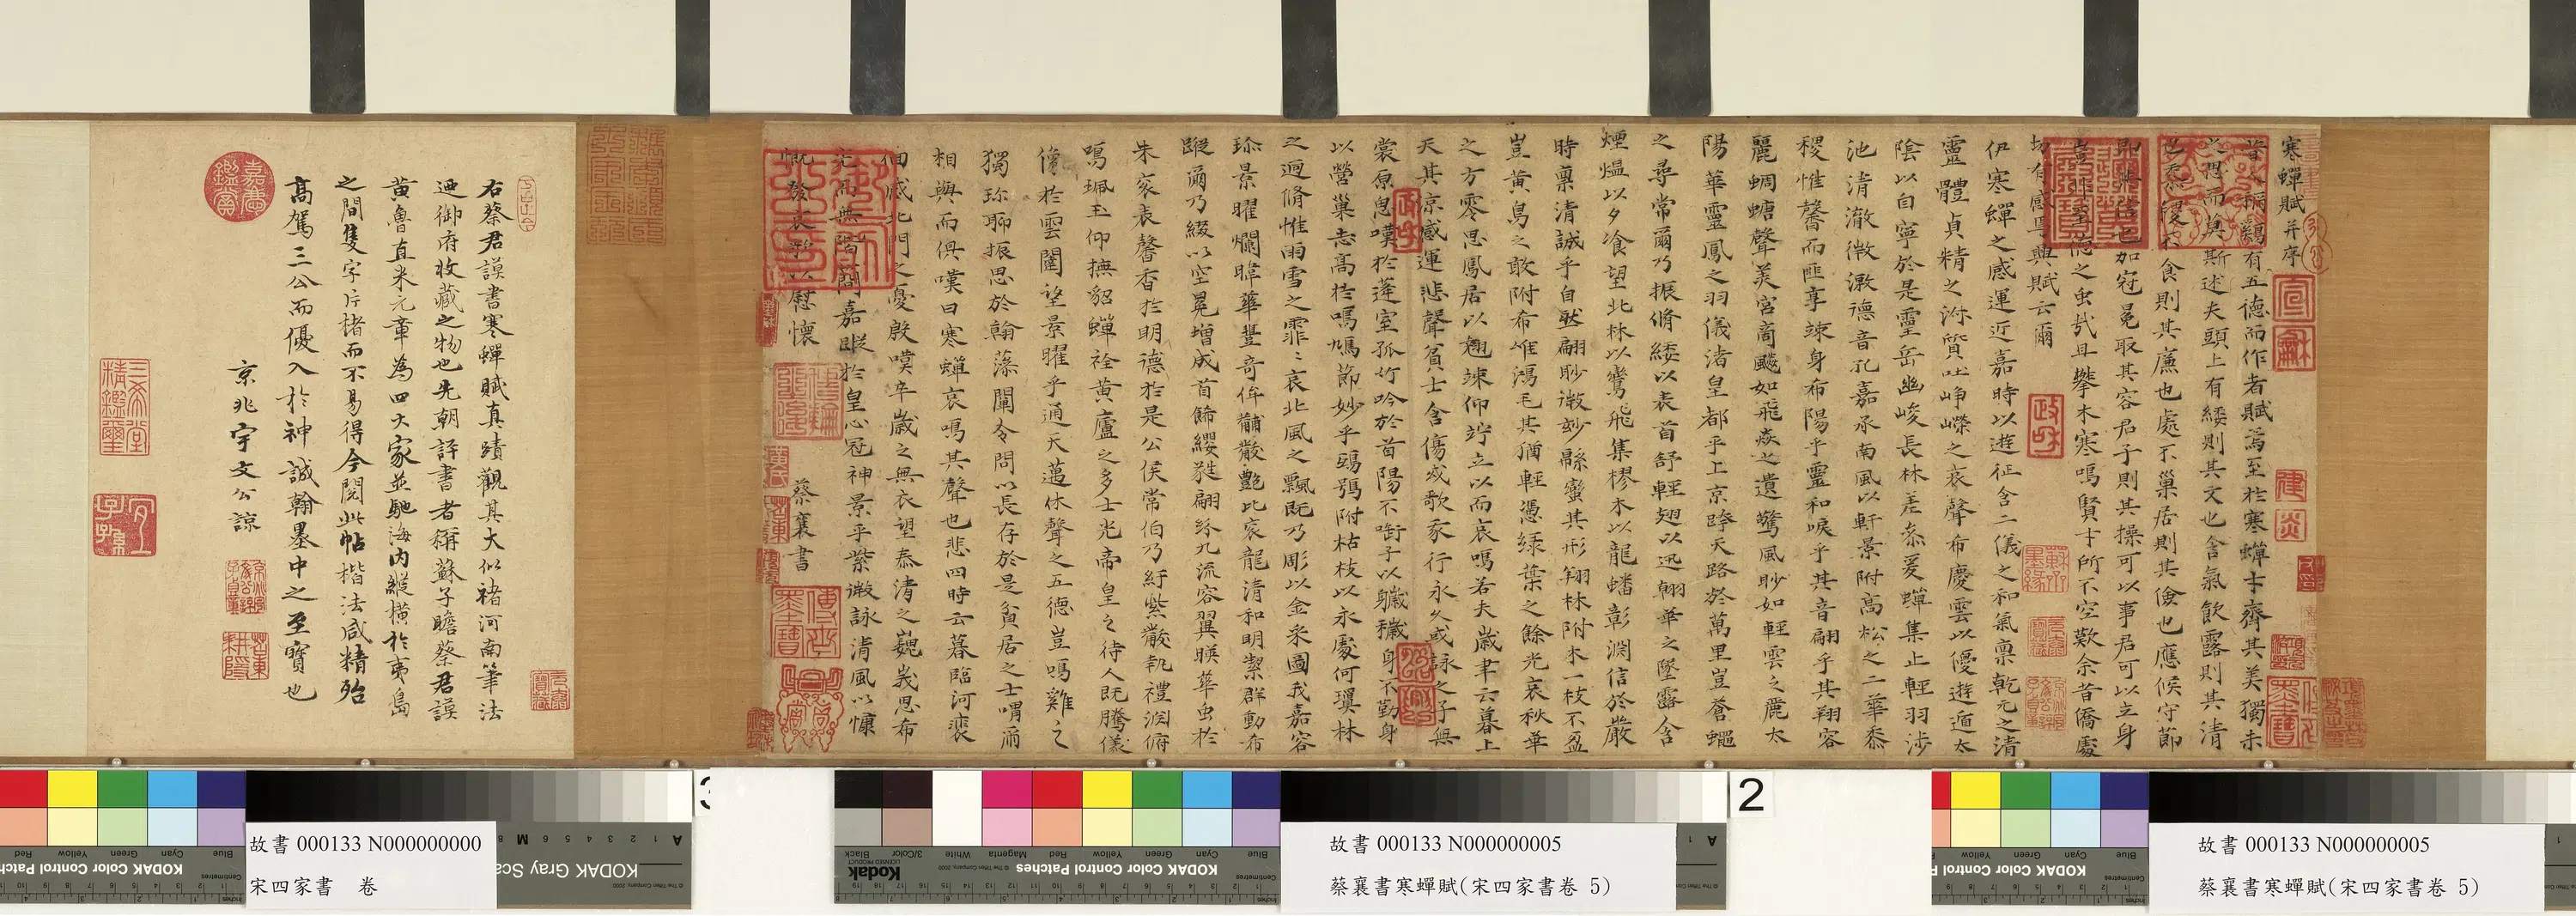 寒蟬賦并序
昔人稱雞有五德而作者賦焉至於寒蟬才齊其美獨未
之思而莫斯述夫頭上有緌則其文也含氣飲露則其清
也黍稷不食則其廉也處不巢居則其儉也應候守節
則其信也加冠冕取其容君子則其操可以事君可以立身
豈非至德之虫哉且攀木寒鳴賢士所不空歎余昔僑處
切有感焉興賦云爾
伊寒蟬之感運近嘉時以遊征含二儀之和氣稟乾元之清
靈體貞精之淑質吐崢嶸之哀聲布慶雲以優遊遁太
陰以自寧於是靈岳幽峻長林差參爰蟬集止輕羽涉
池清澈微激德音孔嘉承南風以軒景附高松之二華黍
稷惟馨而匪享竦身布陽乎靈和唳乎其音翩乎其翔容
麗蜩螗聲美宮商飈如飛焱之遺驚風眇如輕雲之麗太
陽華靈鳳之羽儀渚皇都乎上京跨天路於萬里豈蒼蠅
之尋常爾乃振脩緌以表首舒輕翅以迅翰華之墜露含
煙熅以夕飡望北林以鸞飛集樛木以龍蟠彰淵信於嚴
時稟清誠乎自然翩眇微妙緜蠻其形翔林附木一枝不盈
豈黃鳥之敢附布惟鴻毛其猶輕憑綠葉之餘光哀秋華
之方零思鳳居以翹竦仰竚立以而哀鳴若夫歲聿云暮上
天其涼感運悲聲貧士含傷或歌我行永久或詠之子無
裳原思嘆於蓬室孤竹吟於首陽不銜子以穢身不勤身
以營巢志高於鳴鳩節妙乎鴟鴞附枯枝以永處何瓊林
之迥脩惟雨雪之霏霏哀北風之飄既乃彫以金采圖我嘉容
珍景曜爛暐華豐奇侔黼黻艷比衮龍清和明潔群動希
蹤爾乃綴以空冕增成首飾纓蕤翩紛九流容翼暎華虫於
朱衮表馨香於明德於是公侯常伯乃紆紫黻執禮淵俯
鳴珮玉仰撫貂蟬詮黃廬之多士光帝皇之待人既騰儀
像於雲闈望景曜乎通天邁休聲之五德豈鳴雞之
獨珍聊振思於翰藻闡令問以長存於是貧居之士喟爾
相與而俱嘆曰寒蟬哀鳴其聲也悲四時云暮臨河裴
徊感北門之憂殷嘆卒歲之無衣望泰清之巍峩思布
光而無階問嘉蹤於皇心冠神景乎紫微詠清風以慷
慨發哀歌以慰懷
蔡襄書
右蔡君謨書寒蟬賦真蹟觀其大似褚河南筆法
迺御府收藏之物也先朝評書者稱蘇子瞻蔡君謨
黃魯直米元章為四大家並馳海內縱橫於夷島
之間隻字片楮而不易得今閱此帖楷法咸精殆
高駕三公而優入於神誠翰墨中之至寶也
京兆宇文公諒
嘉慶鑑賞
三希堂精鑑璽
宜子孫
宣龢
政和
建炎
故書 000133 N000000000
宋四家書 卷
故書 000133 N000000005
蔡襄書寒蟬賦(宋四家書卷 5)
故書 000133 N000000005
蔡襄書寒蟬賦(宋四家書卷 5)
2
KODAK Gray Sca
KODAK Color Control Patches
Kodak